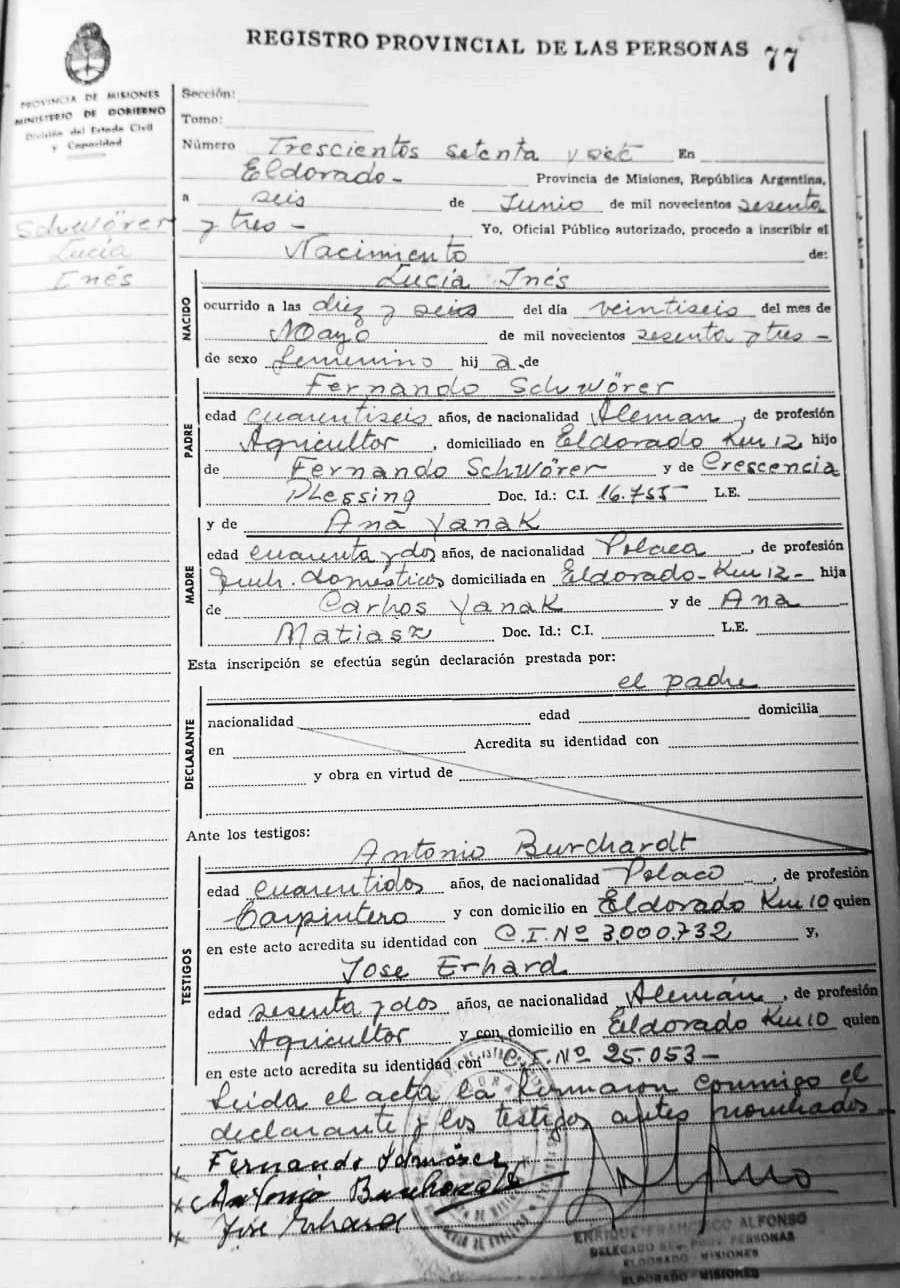 REGISTRO PROVINCIAL DE LAS PERSONAS 77
PROVINCIA DE MISIONES
MINISTERIO DE GOBIERNO
División del Estado Civil
y Capacidad
Schwörer
Lucía
Inés
Sección:
Tomo:
Número Trescientos setenta y En
Eldorado - Provincia de Misiones, República Argentina,
a seis de Junio de mil novecientos sesenta
y tres - Yo, Oficial Público autorizado, procedo a inscribir el
Nacimiento de:
NACIDO
Lucía Inés
ocurrido a las diez y seis del día veintiseis del mes de
Mayo de mil novecientos sesenta y tres -
de sexo femenino hij a de
PADRE
Fernando Schwörer
edad cuarentiseis años, de nacionalidad Alemán, de profesión
Agricultor, domiciliado en Eldorado Km 12 hijo
de Fernando Schwörer y de Crescencia
Plessing Doc. Id.: C.I. 16.755 L.E.
MADRE
y de Ana Yanak
edad cuarenta y dos años, de nacionalidad Polaca, de profesión
domésticos domiciliada en Eldorado - Km 12 - hija
de Carlos Yanak y de Ana
Matiasz Doc. Id.: C.I. L.E.
Esta inscripción se efectúa según declaración prestada por:
el padre
DECLARANTE
nacionalidad edad domicilia
en Acredita su identidad con
y obra en virtud de
Ante los testigos:
TESTIGOS
Antonio Burchardt
edad cuarentidos años, de nacionalidad Polaco, de profesión
Carpintero y con domicilio en Eldorado Km 10 quien
en este acto acredita su identidad con C.I. Nº 3.000.732 y,
Jose Erhard
edad sesenta y dos años, de nacionalidad Alemán, de profesión
Agricultor y con domicilio en Eldorado Km 10 quien
en este acto acredita su identidad con C.I. Nº 25.053 -
Leída el acta la firmaron conmigo el
declarante y los testigos antes nombrados
x Fernando Schwörer
x Antonio Burchardt
x Jose Erhard
ENRIQUE FRANCISCO ALFONSO
DELEGADO REG. PROV. PERSONAS
ELDORADO - MISIONES
ELDORADO - MISIONES